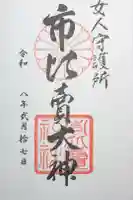 女人守護所
市比賣大神
令和
八年弐月拾七日